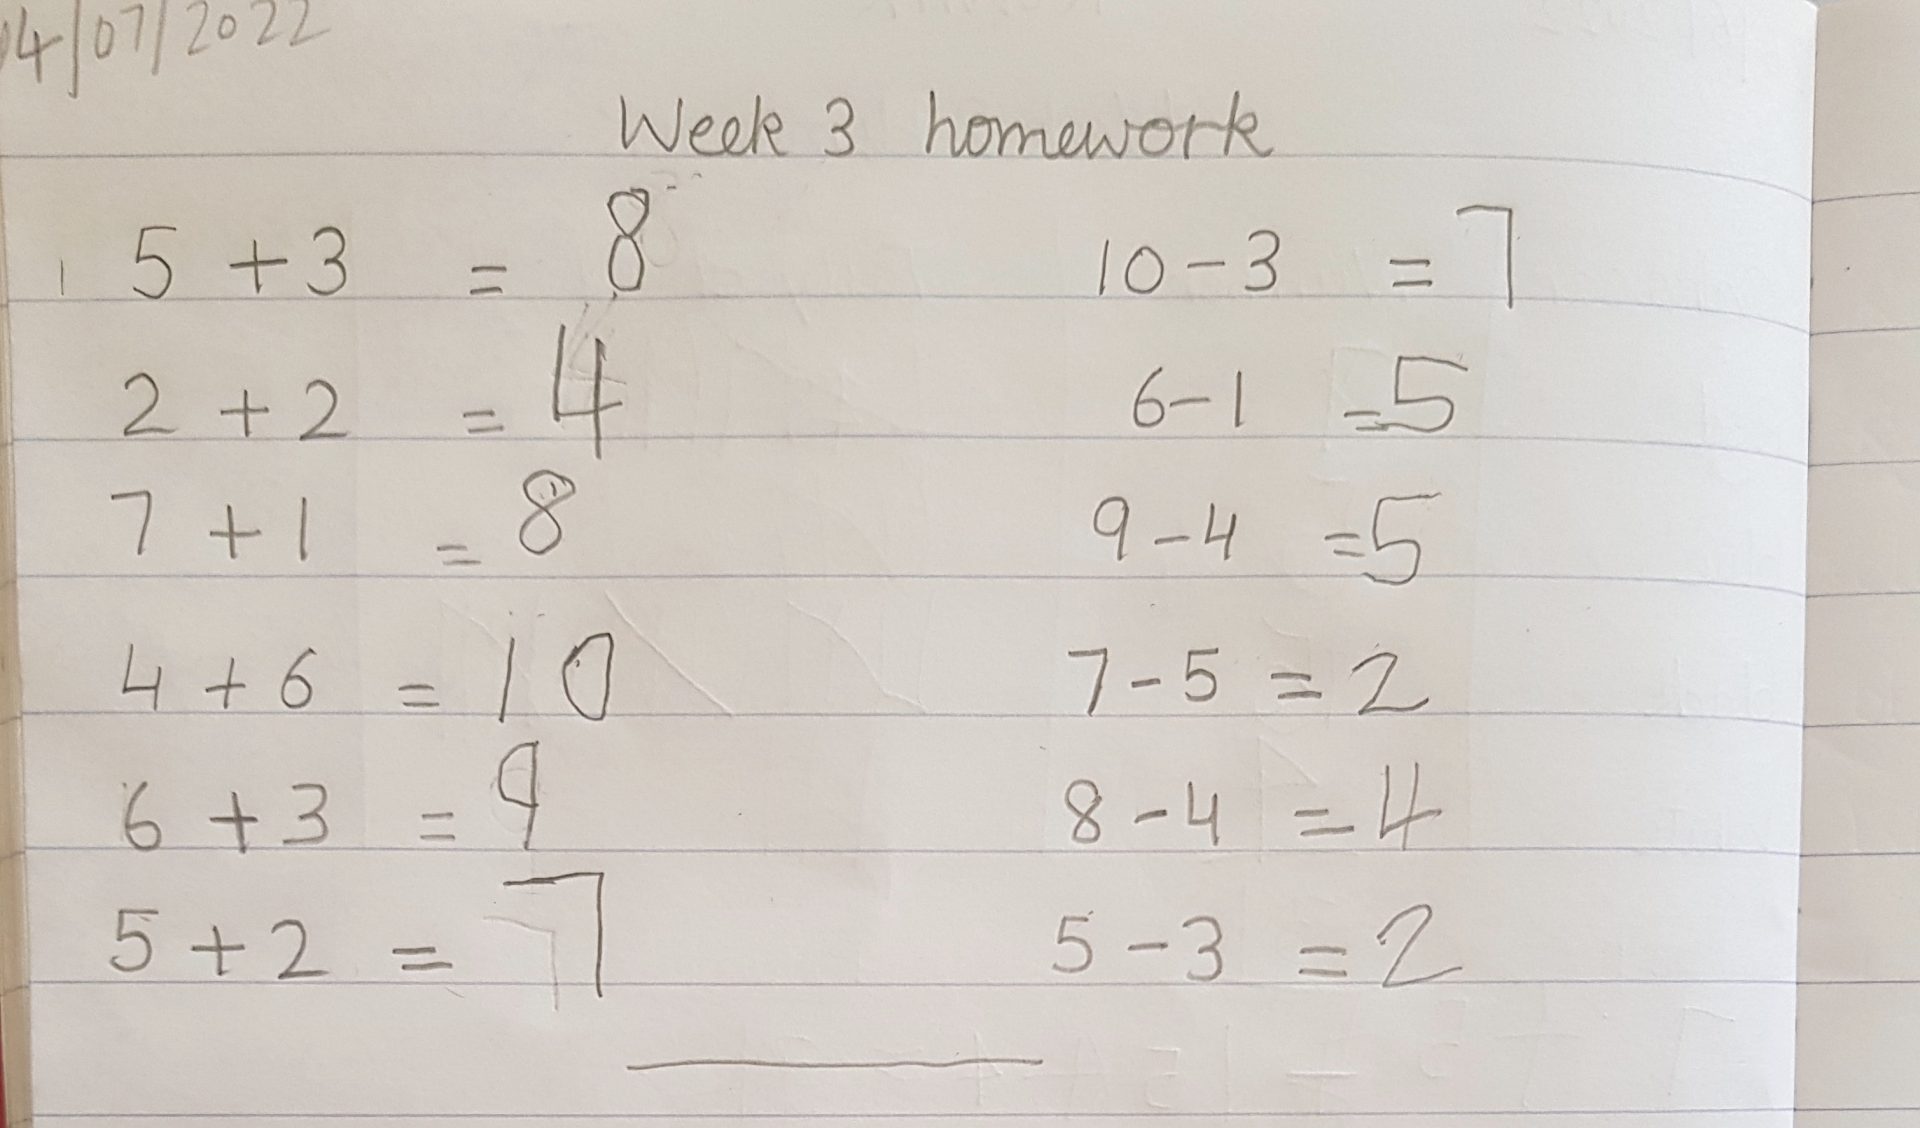 14/07/2022
Week 3 homework
5 + 3 = 8
2 + 2 = 4
7 + 1 = 8
4 + 6 = 10
6 + 3 = 9
5 + 2 = 7
10 - 3 = 7
6 - 1 = 5
9 - 4 = 5
7 - 5 = 2
8 - 4 = 4
5 - 3 = 2